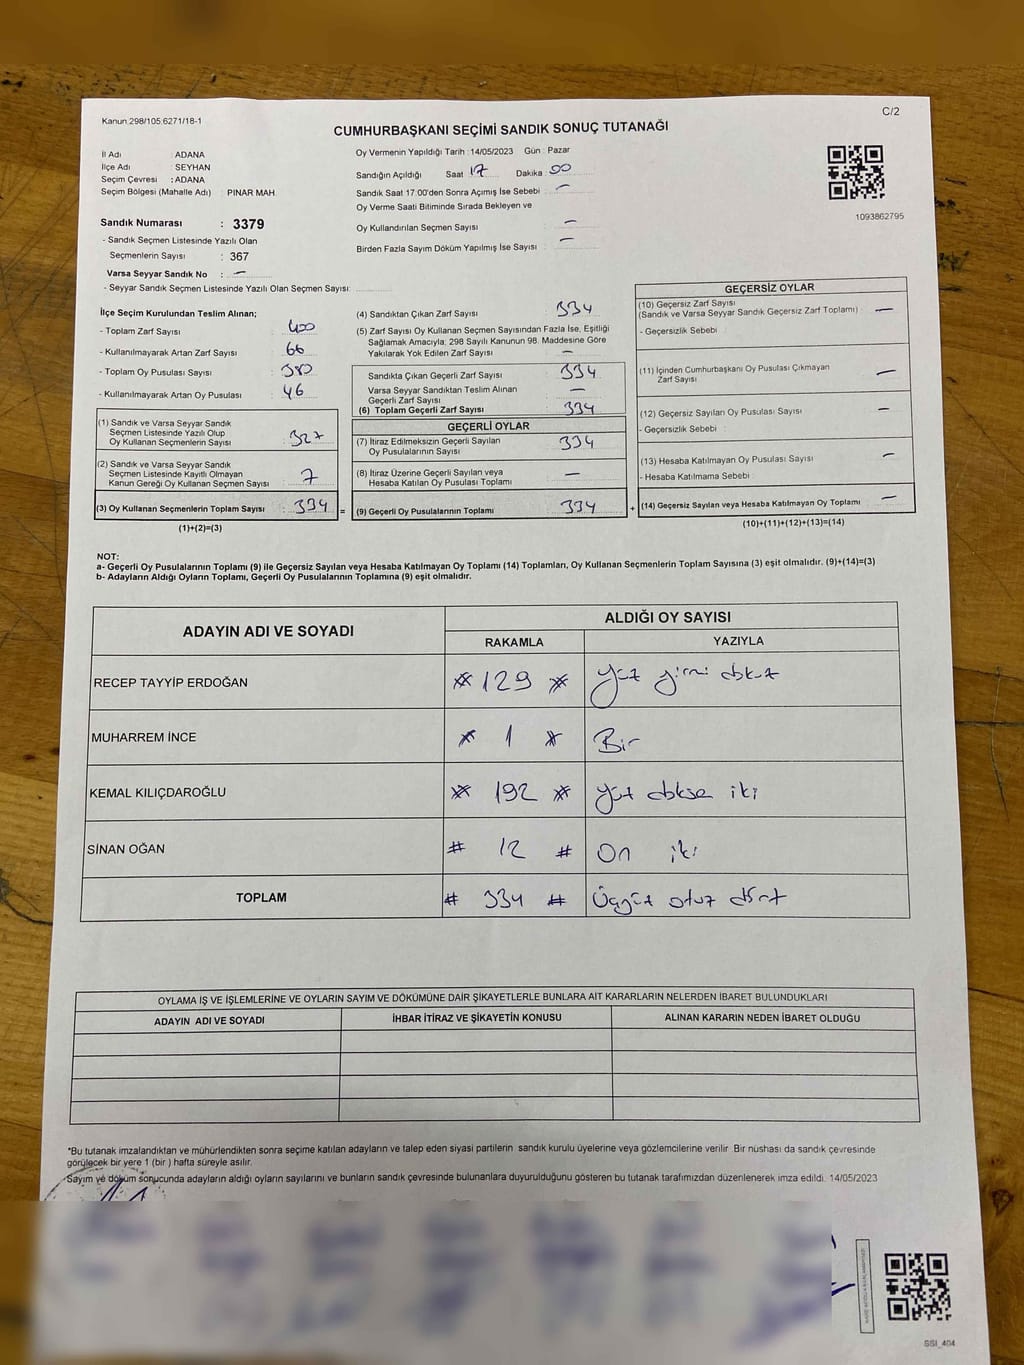 Kanun:298/105.6271/18-1
C/2
CUMHURBAŞKANI SEÇİMİ SANDIK SONUÇ TUTANAĞI
İl Adı : ADANA
İlçe Adı : SEYHAN
Seçim Çevresi : ADANA
Seçim Bölgesi (Mahalle Adı) : PINAR MAH.
Sandık Numarası : 3379
- Sandık Seçmen Listesinde Yazılı Olan
Seçmenlerin Sayısı : 367
Varsa Seyyar Sandık No : —
- Seyyar Sandık Seçmen Listesinde Yazılı Olan Seçmen Sayısı:
Oy Vermenin Yapıldığı Tarih :14/05/2023 Gün : Pazar
Sandığın Açıldığı Saat 17 Dakika : 00
Sandık Saat 17:00'den Sonra Açımış İse Sebebi : —
Oy Verme Saati Bitiminde Sırada Bekleyen ve
Oy Kullandırılan Seçmen Sayısı : —
Birden Fazla Sayım Döküm Yapılmış İse Sayısı : —
1093862795
İlçe Seçim Kurulundan Teslim Alınan;
- Toplam Zarf Sayısı : 400
- Kullanılmayarak Artan Zarf Sayısı : 66
- Toplam Oy Pusulası Sayısı : 380
- Kullanılmayarak Artan Oy Pusulası : 46
(1) Sandık ve Varsa Seyyar Sandık
Seçmen Listesinde Yazılı Olup
Oy Kullanan Seçmenlerin Sayısı : 327
(2) Sandık ve Varsa Seyyar Sandık
Seçmen Listesinde Kayıtlı Olmayan
Kanun Gereği Oy Kullanan Seçmen Sayısı : 7
(3) Oy Kullanan Seçmenlerin Toplam Sayısı : 334 =
(1)+(2)=(3)
(4) Sandıktan Çıkan Zarf Sayısı : 334
(5) Zarf Sayısı Oy Kullanan Seçmen Sayısından Fazla İse, Eşitliği
Sağlamak Amacıyla; 298 Sayılı Kanunun 98. Maddesine Göre
Yakılarak Yok Edilen Zarf Sayısı : —
Sandıkta Çıkan Geçerli Zarf Sayısı : 334
Varsa Seyyar Sandıktan Teslim Alınan
Geçerli Zarf Sayısı : —
(6) Toplam Geçerli Zarf Sayısı : 334
GEÇERLİ OYLAR
(7) İtiraz Edilmeksizin Geçerli Sayılan
Oy Pusulalarının Sayısı : 334
(8) İtiraz Üzerine Geçerli Sayılan veya
Hesaba Katılan Oy Pusulası Toplamı : —
(9) Geçerli Oy Pusulalarının Toplamı : 334 +
GEÇERSİZ OYLAR
(10) Geçersiz Zarf Sayısı
(Sandık ve Varsa Seyyar Sandık Geçersiz Zarf Toplamı) : —
- Geçersizlik Sebebi :
(11) İçinden Cumhurbaşkanı Oy Pusulası Çıkmayan
Zarf Sayısı : —
(12) Geçersiz Sayılan Oy Pusulası Sayısı : —
- Geçersizlik Sebebi :
(13) Hesaba Katılmayan Oy Pusulası Sayısı : —
- Hesaba Katılmama Sebebi :
(14) Geçersiz Sayılan veya Hesaba Katılmayan Oy Toplamı : —
(10)+(11)+(12)+(13)=(14)
NOT:
a- Geçerli Oy Pusulalarının Toplamı (9) ile Geçersiz Sayılan veya Hesaba Katılmayan Oy Toplamı (14) Toplamları, Oy Kullanan Seçmenlerin Toplam Sayısına (3) eşit olmalıdır. (9)+(14)=(3)
b- Adayların Aldığı Oyların Toplamı, Geçerli Oy Pusulalarının Toplamına (9) eşit olmalıdır.
ADAYIN ADI VE SOYADI
ALDIĞI OY SAYISI
RAKAMLA YAZIYLA
RECEP TAYYİP ERDOĞAN 129 Yüz yirmi dokuz
MUHARREM İNCE 1 Bir
KEMAL KILIÇDAROĞLU 192 Yüz doksan iki
SİNAN OĞAN # 12 # On iki
TOPLAM # 334 # Üçyüz otuz dört
OYLAMA İŞ VE İŞLEMLERİNE VE OYLARIN SAYIM VE DÖKÜMÜNE DAİR ŞİKAYETLERLE BUNLARA AİT KARARLARIN NELERDEN İBARET BULUNDUKLARI
ADAYIN ADI VE SOYADI İHBAR İTİRAZ VE ŞİKAYETİN KONUSU ALINAN KARARIN NEDEN İBARET OLDUĞU
*Bu tutanak imzalandıktan ve mühürlendikten sonra seçime katılan adayların ve talep eden siyasi partilerin sandık kurulu üyelerine veya gözlemcilerine verilir. Bir nüshası da sandık çevresinde
görülecek bir yere 1 (bir ) hafta süreyle asılır.
Sayım ve döküm sonucunda adayların aldığı oyların sayılarını ve bunların sandık çevresinde bulunanlara duyurulduğunu gösteren bu tutanak tarafımızdan düzenlenerek imza edildi. 14/05/2023
SSI_404